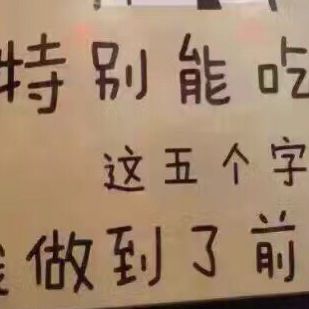 特别能吃
这五个字
做到了前